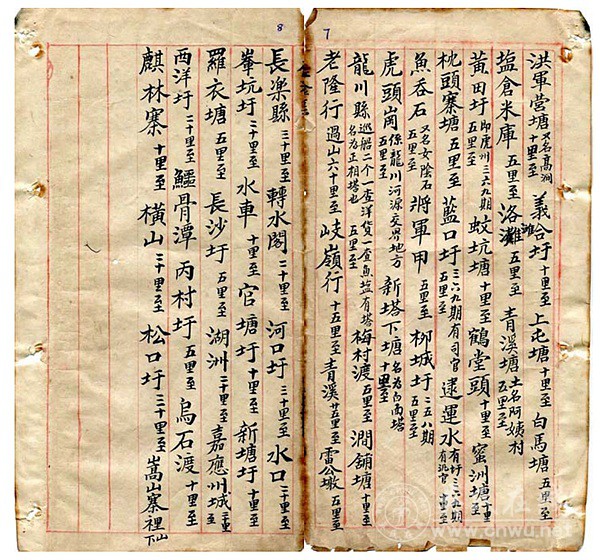 7
洪軍營塘又名高澗十里至義合圩十里至上屯塘十里至白馬塘五里至
塩倉米庫五里至洛灘五里至青溪塘土名阿姨村五里至
黃田圩即虎州三六九期五里至蚊坑塘十里至鶴堂頭十里至蜜洲塘十里至
枕頭寨塘五里至藍口圩三六九期有司官五里至逮運水有圩三六九期有巡官十里至
魚吞石又名女陰石五里至將軍甲五里至柳城圩二五八期五里至
虎頭崗係龍川河源交界地方五里至新塔下塘名為白雨塔十里至
龍川縣巡船二个一查洋貨一查魚塩有塔名為正相塔也五里至梅村渡五里至澗鋪塘十里至
老隆行過山六十里至岐嶺行十五里至青溪廿五里至雷公墩五里至
8
長樂縣三十里至轉水閣二十里至河口圩三十里至水口二十里至
峯坑圩二十里至水車十里至官塘圩十里至新塘圩十里至
羅衣塘五里至長沙圩五里至湖洲二十里至嘉應州城二十里至
西洋圩二十里至鱷骨潭丙村圩五里至烏石渡十里至
麒林寨十里至橫山三十里至松口圩三十里至嵩山寨裡下山
www.cnwu.net